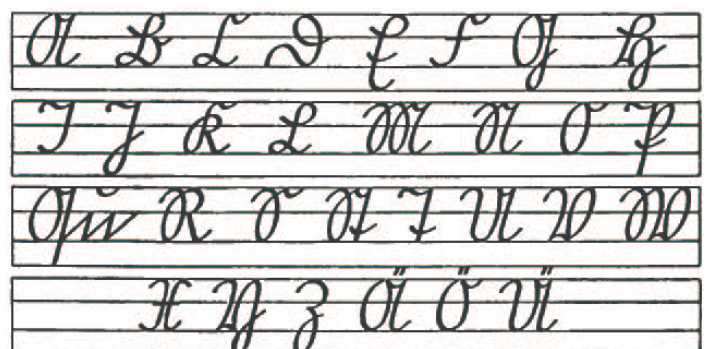 A B C D E F G H
I J K L M N O P
Qu R S St T U V W
X Y Z Ä Ö Ü